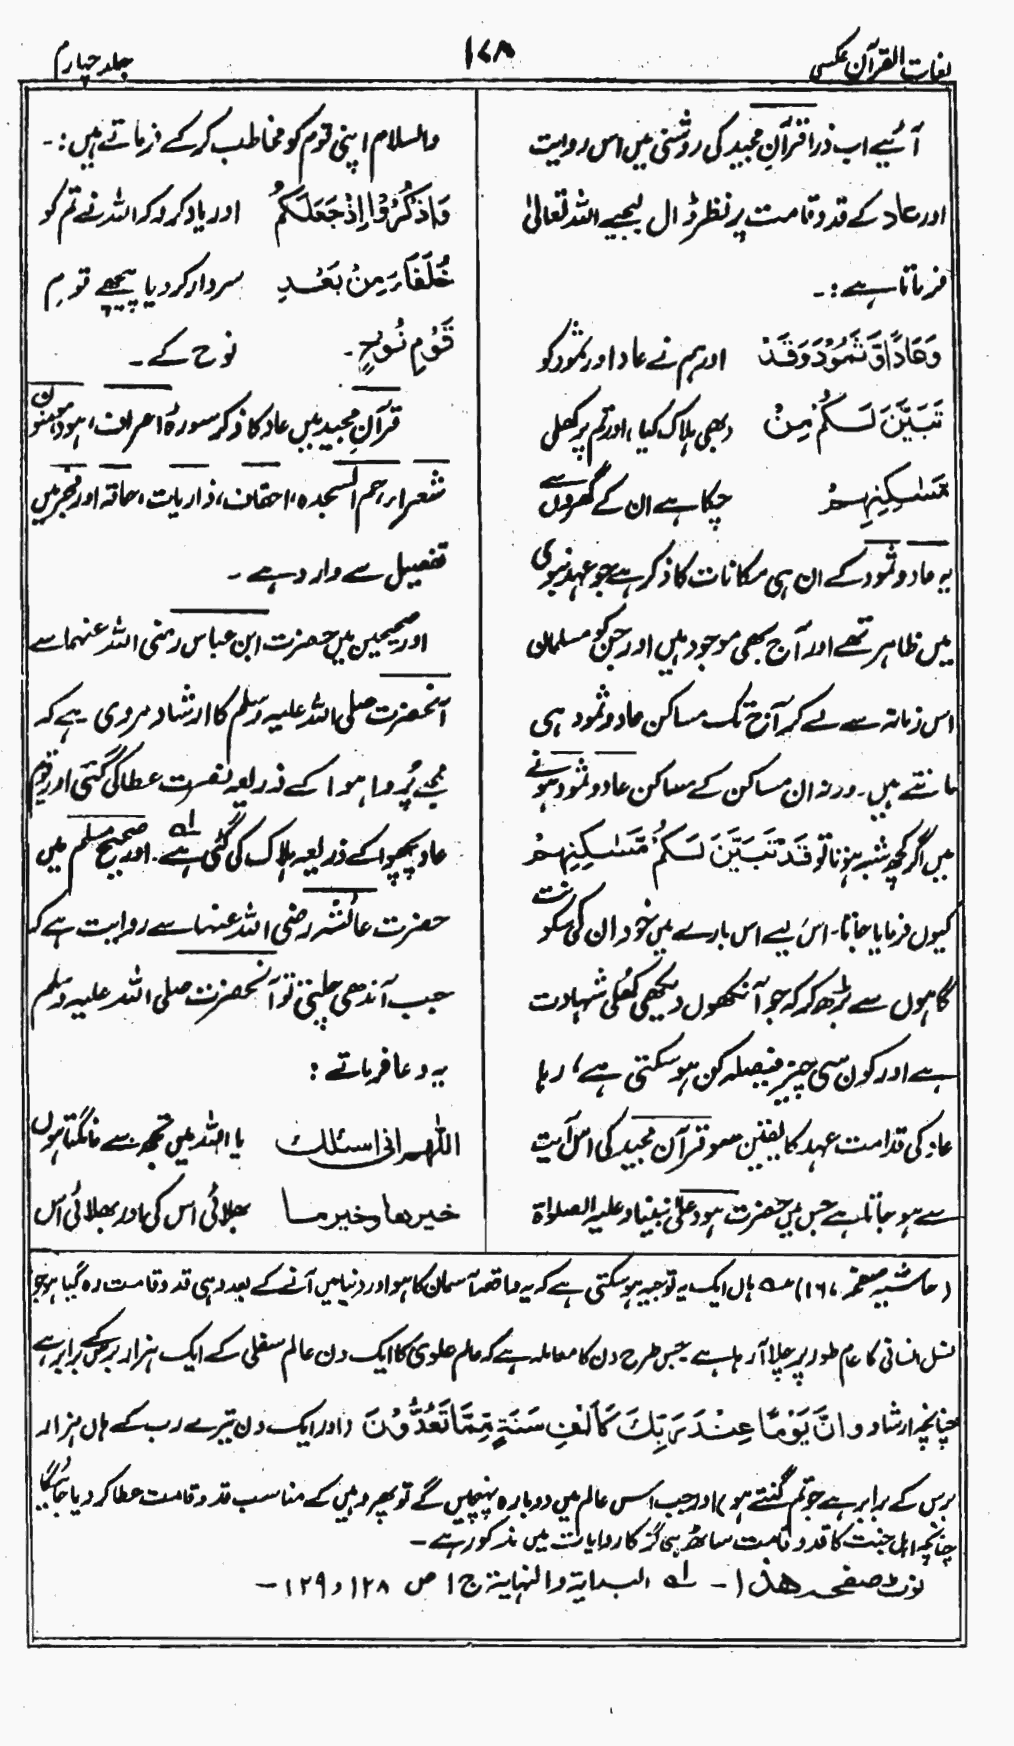 لغات القرآن عکسی
۱۷۸
جلد چہارم
آئیے اب ذرا قرآنِ مجید کی روشنی میں اس روایت
اور عاد کے قد و قامت پر نظر ڈال لیجیے اللہ تعالیٰ
فرماتا ہے :۔
وَعَادًا وَّثَمُوْدَ وَقَدْ اور ہم نے عاد اور ثمود کو
تَبَيَّنَ لَكُمْ مِنْ (بھی ہلاک کیا، اور تم پر کھل
مَسٰكِنِهِمْ چکا ہے ان کے گھروں سے
یہ عاد و ثمود کے ان ہی مکانات کا ذکر ہے جو عہد نبوی
میں ظاہر تھے اور آج بھی موجود ہیں اور جن کو مسلمان
اس زمانہ سے لے کر آج تک مساکن عاد و ثمود ہی
مانتے ہیں۔ ورنہ ان مساکن کے مساکن عاد و ثمود ہونے
میں اگر کچھ شبہ ہوتا تو قَدْ تَبَيَّنَ لَكُمْ مَسٰكِنِهِمْ
کیوں فرمایا جاتا۔ اس لیے اس بارے میں خود ان کی سکونت
گاہوں سے بڑھ کر کہ جو آنکھوں دیکھی کھلی شہادت
ہے اور کون سی چیز فیصلہ کن ہو سکتی ہے، رہا
عاد کی قدامت عہد کا یقین سو قرآن مجید کی اس آیت
سے ہو جاتا ہے جس میں حضرت ہود علیٰ نبینا و علیہ الصلوٰۃ
والسلام اپنی قوم کو مخاطب کر کے فرماتے ہیں :۔
وَاذْكُرُوْا اِذْ جَعَلَكُمْ اور یاد کرو کہ اللہ نے تم کو
خُلَفَاءَ مِنْ بَعْدِ سردار کر دیا پیچھے قوم
قَوْمِ نُوْحٍ۔ نوح کے۔
قرآن مجید میں عاد کا ذکر سورۂ اعراف، ہود، مومنون
شعراء، حم السجدہ، احقاف، ذاریات، حاقہ اور فجر میں
تفصیل سے وارد ہے۔
اور صحیحین میں حضرت ابن عباس رضی اللہ عنہما سے
آنحضرت صلی اللہ علیہ وسلم کا ارشاد مروی ہے کہ
مجھے پُروا ہوا کے ذریعہ نصرت عطا کی گئی اور قوم
عاد پچھوا کے ذریعہ ہلاک کی گئی ہے۔ لہ اور صحیح مسلم میں
حضرت عائشہ رضی اللہ عنہا سے روایت ہے کہ
جب آندھی چلتی تو آنحضرت صلی اللہ علیہ وسلم
یہ دعا فرماتے :
اللھم انی اسئلك یا اللہ میں تجھ سے مانگتا ہوں
خیرھا وخیر ما بھلائی اس کی اور بھلائی اس
(حاشیہ صفحہ ۱۶۷) ہاں ایک یہ توجیہ ہو سکتی ہے کہ یہ واقعہ آسمان کا ہو اور دنیا میں آنے کے بعد وہی قد و قامت رہ گیا ہو جو
نسل انسانی کا عام طور پر چلا آ رہا ہے جس طرح دن کا معاملہ ہے کہ عالم علوی کا ایک دن عالم سفلی کے ایک ہزار برس کے برابر ہے
چنانچہ ارشاد وَاِنَّ يَوْمًا عِنْدَ رَبِّكَ كَاَلْفِ سَنَةٍ مِّمَّا تَعُدُّوْنَ (اور ایک دن تیرے رب کے ہاں ہزار
برس کے برابر ہے جو تم گنتے ہو) اور جب اس عالم میں دوبارہ پہنچیں گے تو پھر وہیں کے مناسب قد و قامت عطا کر دیا جائیگا
چنانچہ اہل جنت کا قد و قامت ساٹھ ہی گز کا روایات میں مذکور ہے۔
نوٹ صفحہ ھذا۔ لہ البدایۃ والنہایۃ ج ۱ ص ۱۲۸ و ۱۲۹۔